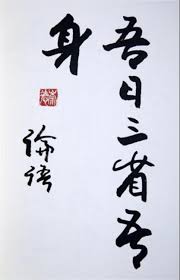 吾日三省吾
身
论语